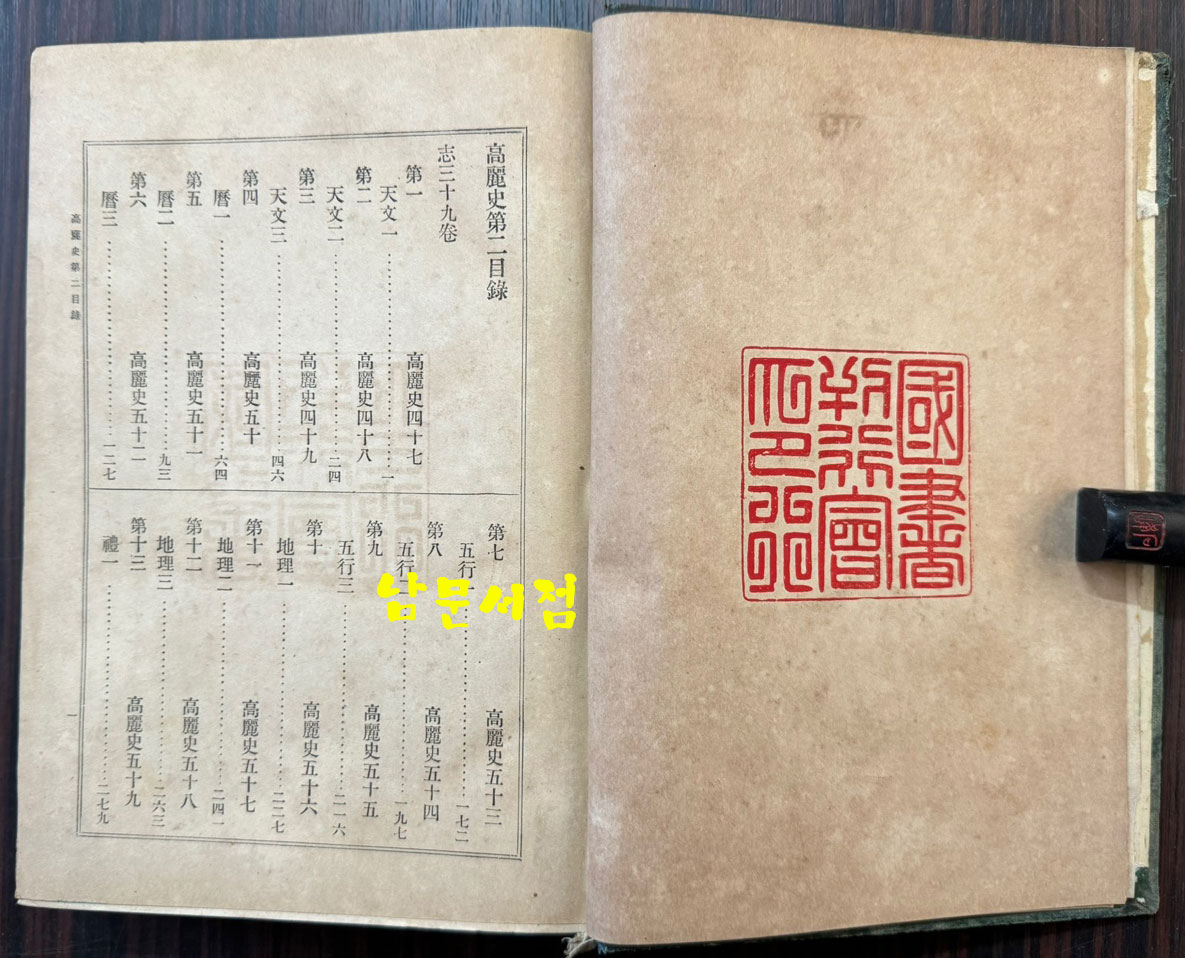 國書
刊行會
高麗史第二目錄
志三十九卷
第一 高麗史四十七
天文一……………一
第二 高麗史四十八
天文二……………二四
第三 高麗史四十九
天文三……………四六
第四 高麗史五十
曆一……………六四
第五 高麗史五十一
曆二……………九三
第六 高麗史五十二
曆三……………一二七
第七 高麗史五十三
五行一……………一七二
第八 高麗史五十四
五行二……………一九七
第九 高麗史五十五
五行三……………二一六
第十 高麗史五十六
地理一……………二二七
第十一 高麗史五十七
地理二……………二四一
第十二 高麗史五十八
地理三……………二六三
第十三 高麗史五十九
禮一……………二七九
高麗史第二目錄
一
남문서점